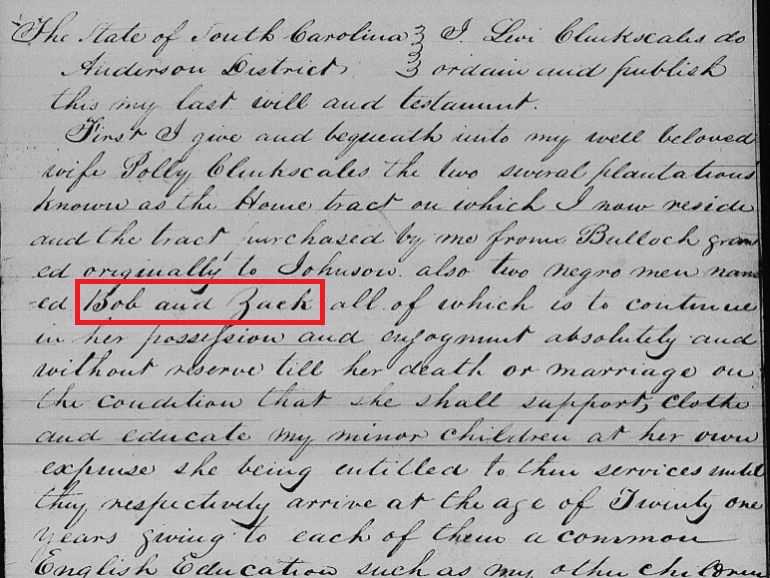 The State of South Carolina } I, Levi Clinkscales do
Anderson District } ordain and publish
this my last will and testament.
First I give and bequeath unto my well beloved
wife Polly Clinkscales the two several plantations
known as the Home tract on which I now reside
and the tract purchased by me from Bulloch grant
ed originally to Johnson. also two negro men nam
-ed Bob and Zack all of which is to continue
in her possession and enjoyment absolutely and
without reserve till her death or marriage on
the condition that she shall support, clothe
and educate my minor children at her own
expense she being entitled to their services until
they respectively arrive at the age of Twenty one
years giving to each of them a common
English Education such as my other children